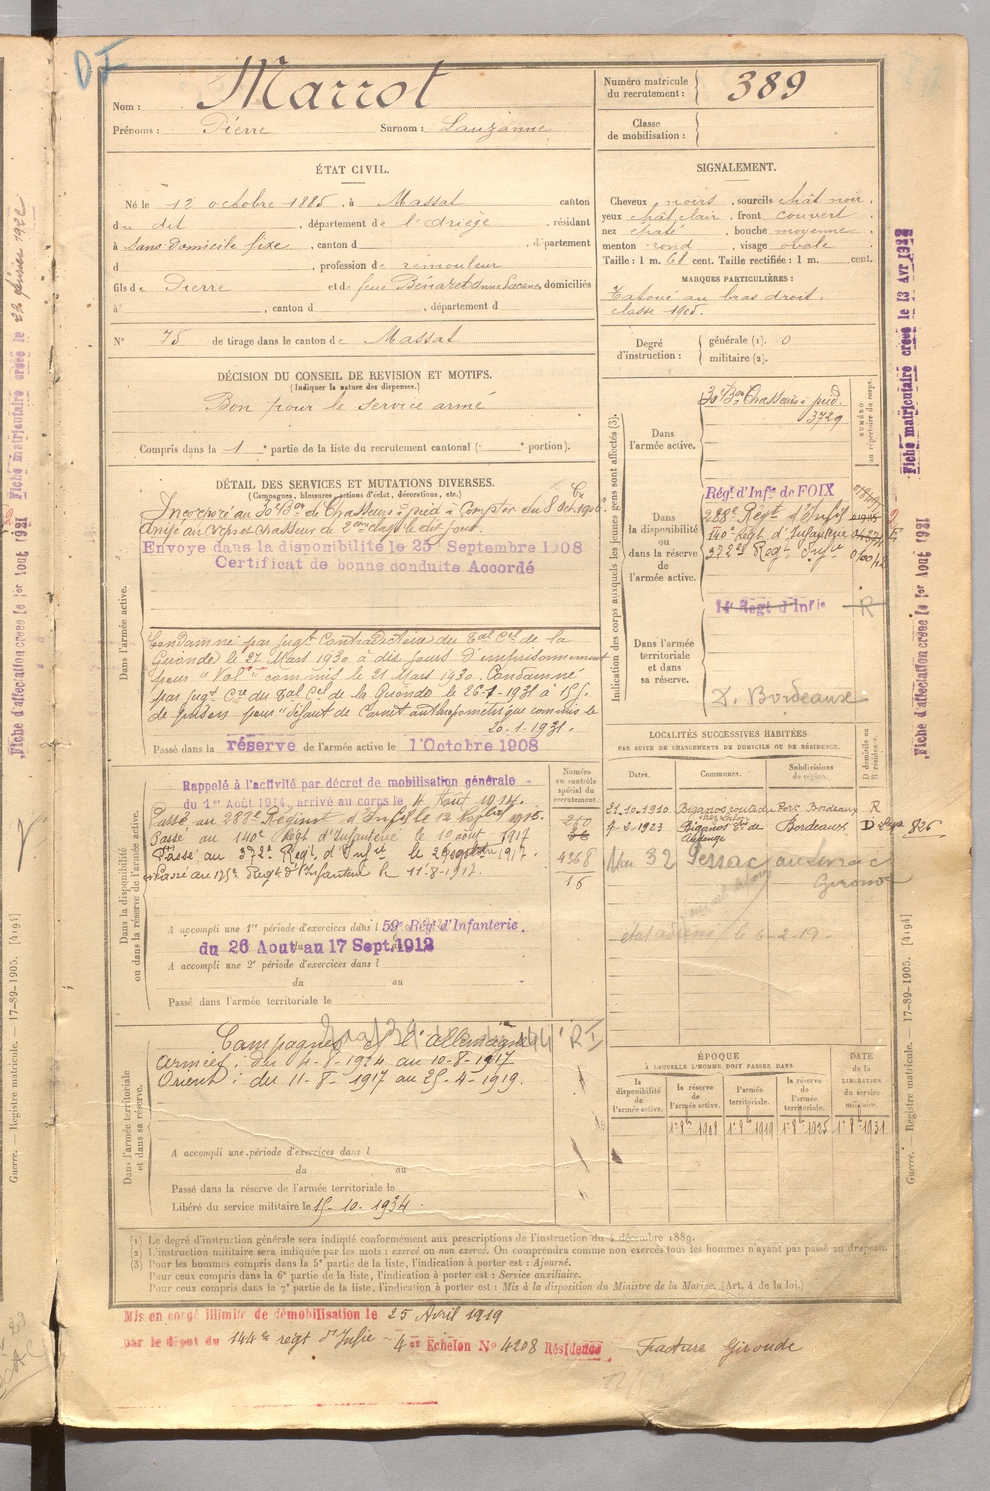 DI
Nom : Marrot
Prénoms : Pierre Surnom : Lauzanne
Numéro matricule
du recrutement : 389
Classe
de mobilisation :
ÉTAT CIVIL.
Né le 12 octobre 1885, à Massat canton
du dit, département de l'Ariège, résidant
à Sans domicile fixe, canton d , département
d , profession de rémouleur
fils de Pierre et de feue Bénazet Anne domiciliés
à , canton d , département d
N° 75 de tirage dans le canton de Massat
SIGNALEMENT.
Cheveux noirs, sourcils chât noir,
yeux chât clair, front couvert,
nez épaté, bouche moyenne,
menton rond, visage ovale
Taille : 1 m. 61 cent. Taille rectifiée : 1 m. cent.
MARQUES PARTICULIÈRES :
Tatoué au bras droit.
classe 1905.
Degré
d'instruction :
générale (1). 0
militaire (2).
DÉCISION DU CONSEIL DE REVISION ET MOTIFS.
(Indiquer la nature des dispenses.)
Bon pour le service armé
Compris dans la 1e partie de la liste du recrutement cantonal ( e portion).
DÉTAIL DES SERVICES ET MUTATIONS DIVERSES.
(Campagnes, blessures, actions d'éclat, décorations, etc.)
Dans l'armée active.
Incorporé au 30e Bon de Chasseurs à pied à Compter du 8 Oct. 1906.
Arrivé au Corps et chasseur de 2eme classe le dit jour.
Envoyé dans la disponibilité le 25 Septembre 1908
Certificat de bonne conduite Accordé
Condamné par jugt Contradictoire du Tal Cel de la
Gironde le 27 Mars 1930 à dix jours d'emprisonnement
pour "Vol" commis le 21 Mars 1930. Condamné
par jugt Cre du Tal Cel de la Gironde le 26-1-1931 à 15 j.
de prison pour "défaut de Carnet anthropométrique commis le
20-1-1931.
Passé dans la réserve de l'armée active le 1 Octobre 1908
Indication des corps auxquels les jeunes gens sont affectés (3).
NUMÉRO
au répertoire du corps.
Dans
l'armée active.
30e Bon Chasseurs à pied.
3729
Dans
la disponibilité
ou
dans la réserve
de
l'armée active.
Régt d'Infie de FOIX
288e Régt d'Infie
140e Régt d'Infanterie
372e Regt Infie
14e Regt d'Infie R
Dans l'armée
territoriale
et dans
sa réserve.
D. Bordeaux
LOCALITÉS SUCCESSIVES HABITÉES
PAR SUITE DE CHANGEMENTS DE DOMICILE OU DE RÉSIDENCE.
Dates. Communes. Subdivisions
de région. D domicile ou
R résidence.
21.10.1910 Biganos route du Port Bordeaux R
7-2-1923 Biganos Bordeaux D
Mai 32 Pessac
Gironde
Dans la disponibilité
ou dans la réserve de l'armée active.
Numéro
au contrôle
spécial du
recrutement.
Rappelé à l'activité par décret de mobilisation générale
du 1er Août 1914, arrivé au corps le 4 Août 1914.
Passé au 288e Régiment d'Infie le 12 1915.
Passé au 140e Régt d'Infanterie le 10 août 1917
Passé au 372e Regt d'Infie le 1917.
Passé au 175e Regt d'Infanterie le 11-8-1917.
4268
16
A accompli une 1re période d'exercices dans l 59e Régt d'Infanterie.
du 26 Aout au 17 Sept. 1912
A accompli une 2e période d'exercices dans l
du au
Passé dans l'armée territoriale le
Dans l'armée territoriale
et dans sa réserve.
Campagnes et l'Allemagne
Armées : du 4-8-1914 au 10-8-1917
Orient : du 11-8-1917 au 25-4-1919.
A accompli une période d'exercices dans l
du au
Passé dans la réserve de l'armée territoriale le
Libéré du service militaire le 15-10-1934.
ÉPOQUE
À LAQUELLE L'HOMME DOIT PASSER DANS
DATE
de la
LIBÉRATION
du service
militaire.
la
disponibilité
de
l'armée active.
la réserve
de
l'armée active.
l'armée
territoriale.
la réserve
de
l'armée
territoriale.
1er 8bre 1908 1er 8bre 1919 1er 8bre 1925 1er 8bre 1931
(1) Le degré d'instruction générale sera indiqué conformément aux prescriptions de l'instruction du 4 décembre 1889.
(2) L'instruction militaire sera indiquée par les mots : exercé ou non exercé. On comprendra comme non exercés tous les hommes n'ayant pas passé au drapeau.
(3) Pour les hommes compris dans la 5e partie de la liste, l'indication à porter est : Ajourné.
Pour ceux compris dans la 6e partie de la liste, l'indication à porter est : Service auxiliaire.
Pour ceux compris dans la 7e partie de la liste, l'indication à porter est : Mis à la disposition du Ministre de la Marine. (Art. 4 de la loi.)
Mis en congé illimité de démobilisation le 25 Avril 1919
par le dépôt du 144e régt d'Infie - 4e Échelon N° 4208 Résidence Facture Gironde
Fiche matriculaire créée le 13 Avr 1922
Fiche d'affectation créée le 1er Août 1921
Guerre. — Registre matricule. — 17-89-1905. [4194]
Fiche matriculaire créée le 22 février 1922
Fiche d'affectation créée le 1er Août 1921
Guerre. — Registre matricule. — 17-89-1905. [4194]